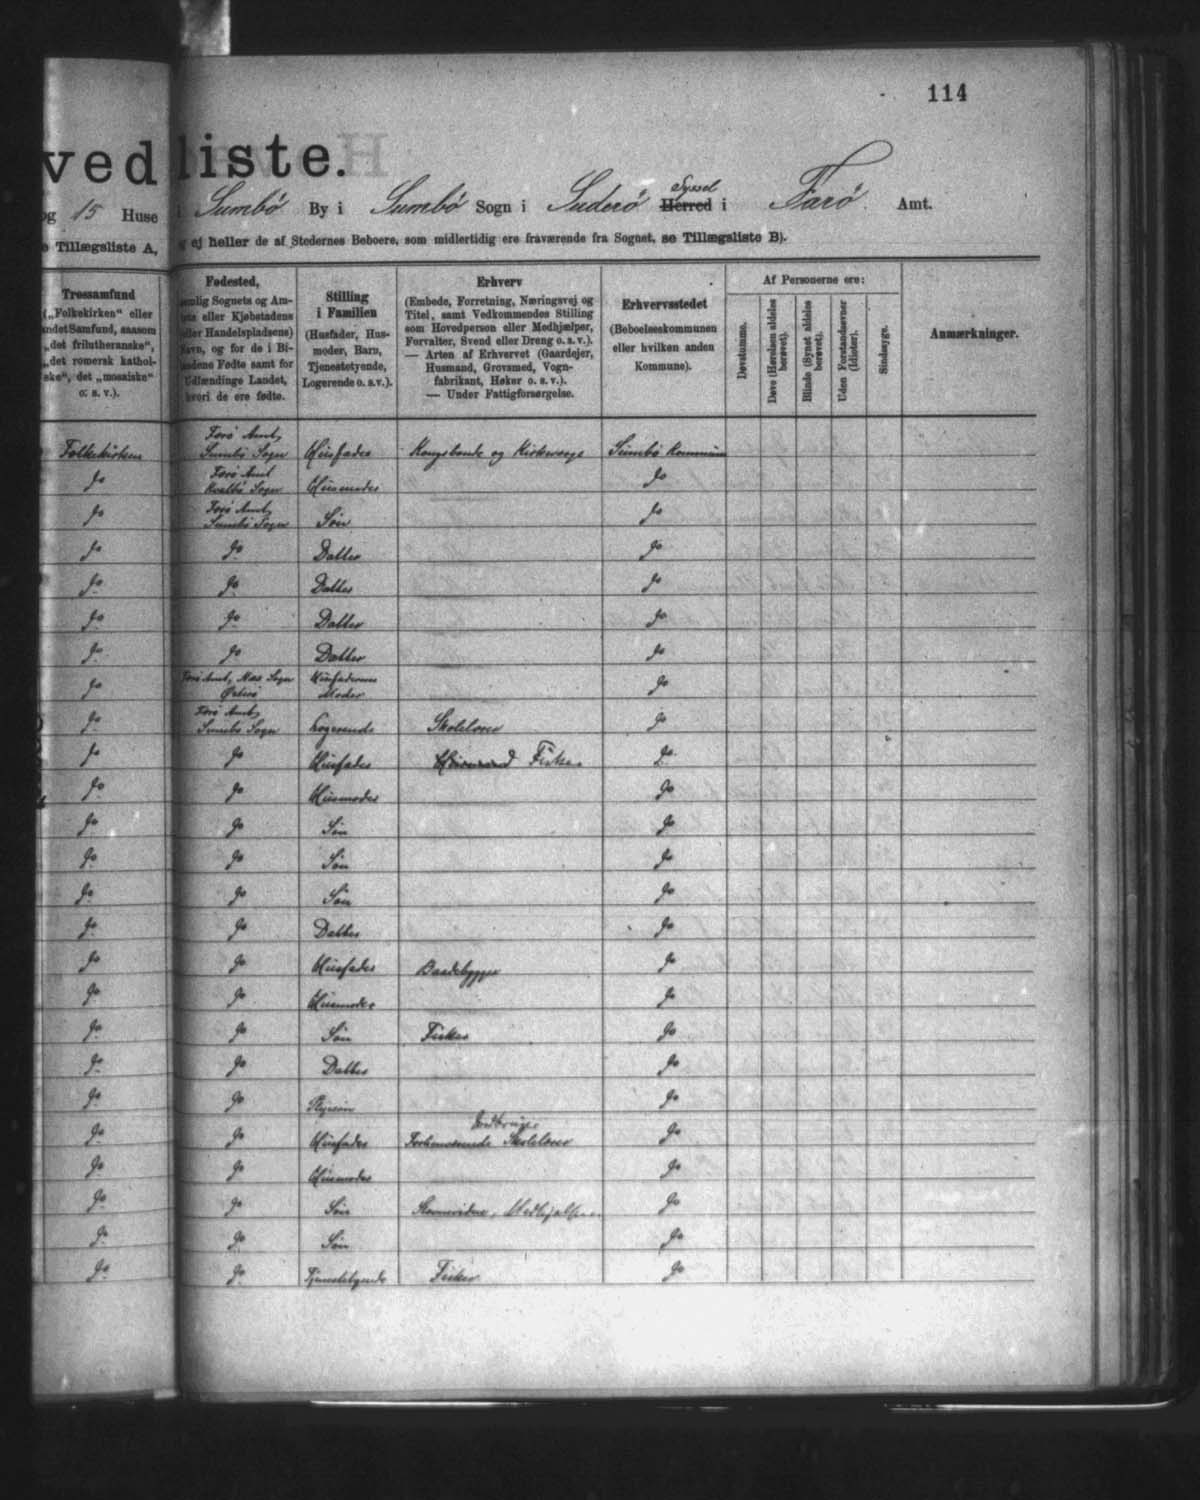 114
vedliste.
og 15 Huse i Sumbø By i Sumbø Sogn i Suderø Syssel Herred i Færø Amt.
Tillægsliste A, og ej heller de af Stedernes Beboere, som midlertidig ere fraværende fra Sognet, se Tillægsliste B).
Trossamfund
(„Folkekirken“ eller
andet Samfund, saasom
„det frilutheranske“,
„det romersk kathol-
ske“, det „mosaiske“
o. s. v.).
Fødested,
nemlig Sognets og Am-
tets eller Kjøbstadens
(eller Handelspladsens)
Navn, og for de i Bi-
landene Fødte samt for
Udlændinge Landet,
hvori de ere fødte.
Stilling
i Familien
(Husfader, Hus-
moder, Barn,
Tjenestetyende,
Logerende o. s. v.).
Erhverv
(Embede, Forretning, Næringsvej og
Titel, samt Vedkommendes Stilling
som Hovedperson eller Medhjælper,
Forvalter, Svend eller Dreng o. s. v.).
— Arten af Erhvervet (Gaardejer,
Husmand, Grovsmed, Vogn-
fabrikant, Høker o. s. v.).
— Under Fattigforsørgelse.
Erhvervsstedet
(Beboelseskommunen
eller hvilken anden
Kommune).
Af Personerne ere:
Døvstumme.
Døve (Hørelsen aldeles
berøvet).
Blinde (Synet aldeles
berøvet).
Uden Forstandsevner
(Idioter).
Sindssyge.
Anmærkninger.
Folkekirken Færø Amt, Sumbø Sogn Husfader Kongsbonde og Kirkeværge Sumbø Kommune
do Færø Amt Kvalbø Sogn Husmoder do
do Færø Amt, Sumbø Sogn Søn do
do do Datter do
do do Datter do
do do Datter do
do do Datter do
do Færø Amt, Næs Sogn Østerø Husfaderens Moder do
do Færø Amt, Sumbø Sogn Logerende Skolelærer do
do do Husfader Husmand Fisker do
do do Husmoder do
do do Søn do
do do Søn do
do do Søn do
do do Datter do
do do Husfader Baadebygger do
do do Husmoder do
do do Søn Fisker do
do do Datter do
do do Plejesøn do
do do Husfader Jordbruger Forhenværende Skolelærer do
do do Husmoder do
do do Søn Medhjælper do
do do Søn do
do do Tjenestetyende Fisker do